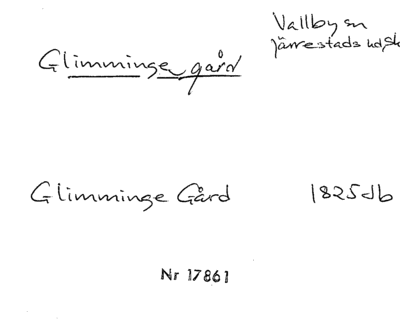 Vallby sn
Järrestads hd, Sk
Glimminge gård
Glimminge Gård 1825 Jb
Nr 17861